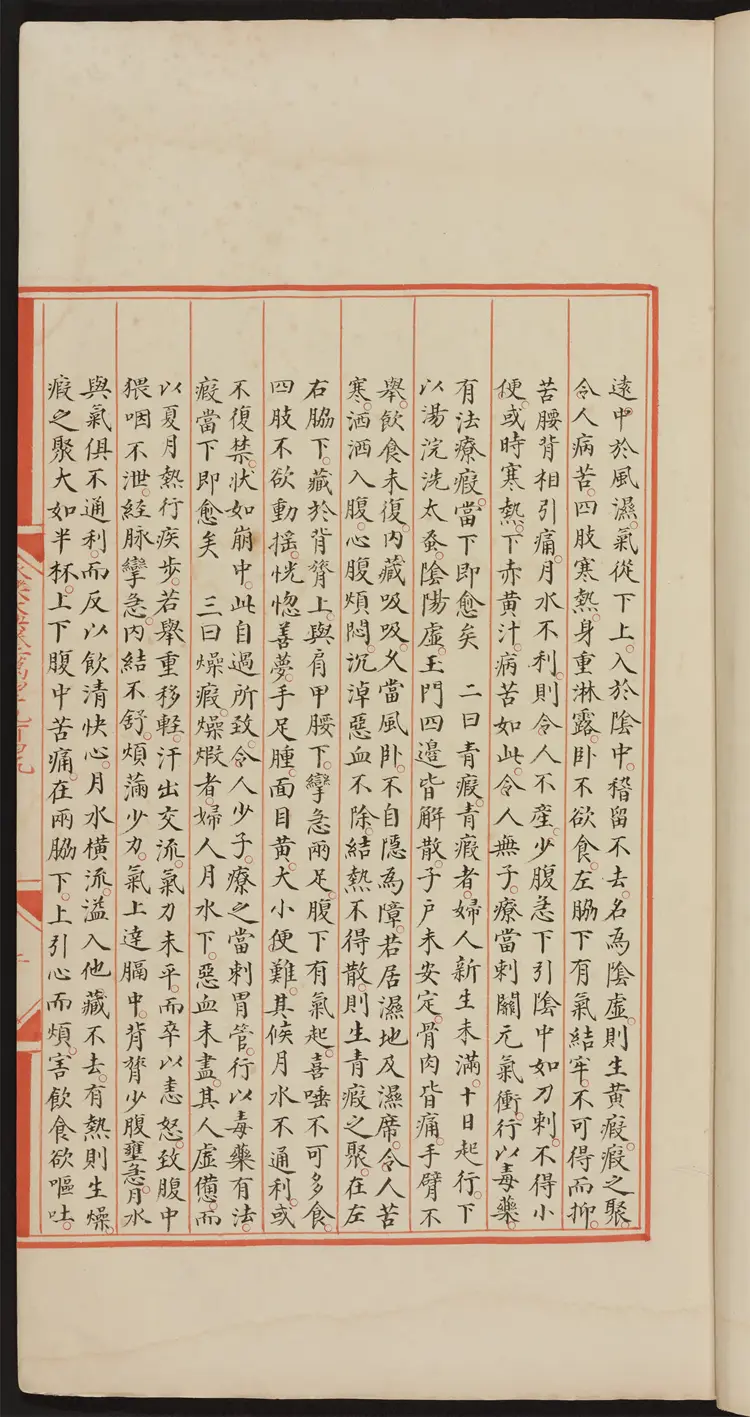 遠中於風濕。氣從下上。入於陰中。稽留不去。名爲陰虛。則生黃瘕。瘕之聚。
令人病苦。四肢寒熱。身重淋露。卧不欲食。左脇下有氣結牢。不可得而抑。
苦腰背相引痛。月水不利。則令人不産。少腹急下引陰中如刀刺。不得小
便。或時寒熱。下赤黃汁。病苦如此。令人無子。療當刺關元氣衝。行以毒藥。
有法療瘕。當下即愈矣　二曰青瘕。青瘕者。婦人新生未滿。十日起行。下
以湯浣洗太蚤。陰陽虛。玉門四邉皆解散。子户未安定。骨肉皆痛。手臂不
舉。飲食未復。内藏吸吸。久當風卧。不自隱爲障。若居濕地及濕席。令人苦
寒。洒洒入腹。心腹煩悶。沉淖惡血不除。結熱不得散。則生青瘕之聚。在左
右脇下。藏於背膂上。與肩甲腰下。攣急兩足。腹下有氣起。喜唾不可多食。
四肢不欲動揺。恍惚善夢。手足腫。面目黃。大小便難。其候月水不通利。或
不復禁。狀如崩中。此自過所致。令人少子。療之當刺胃管。行以毒藥有法。
瘕當下即愈矣　三曰燥瘕。燥煆者。婦人月水下。惡血未盡。其人虛憊。而
以夏月熱行疾步。若舉重移輕。汗出交流。氣力未平。而卒以恚怒。致腹中
猥咽不泄。經脉攣急。内結不舒。煩滿少力。氣上達膈中。背膂少腹壅急。月水
與氣俱不通利。而反以飲清快心。月水橫流。溢入他藏不去。有熱則生燥。
瘕之聚大如半杯。上下腹中苦痛。在兩脇下。上引心而煩。害飲食欲嘔吐。